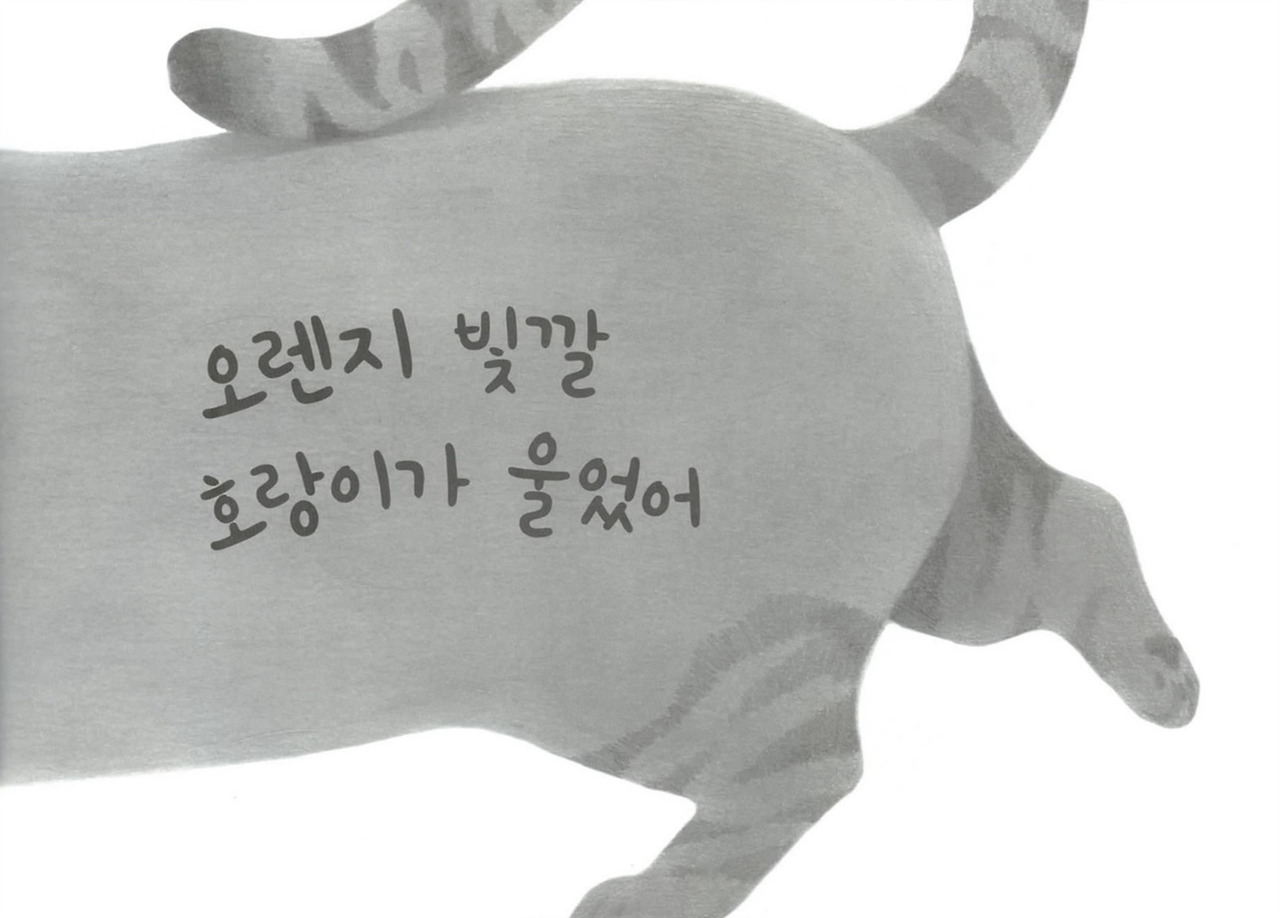 오렌지 빛깔
호랑이가 울었어